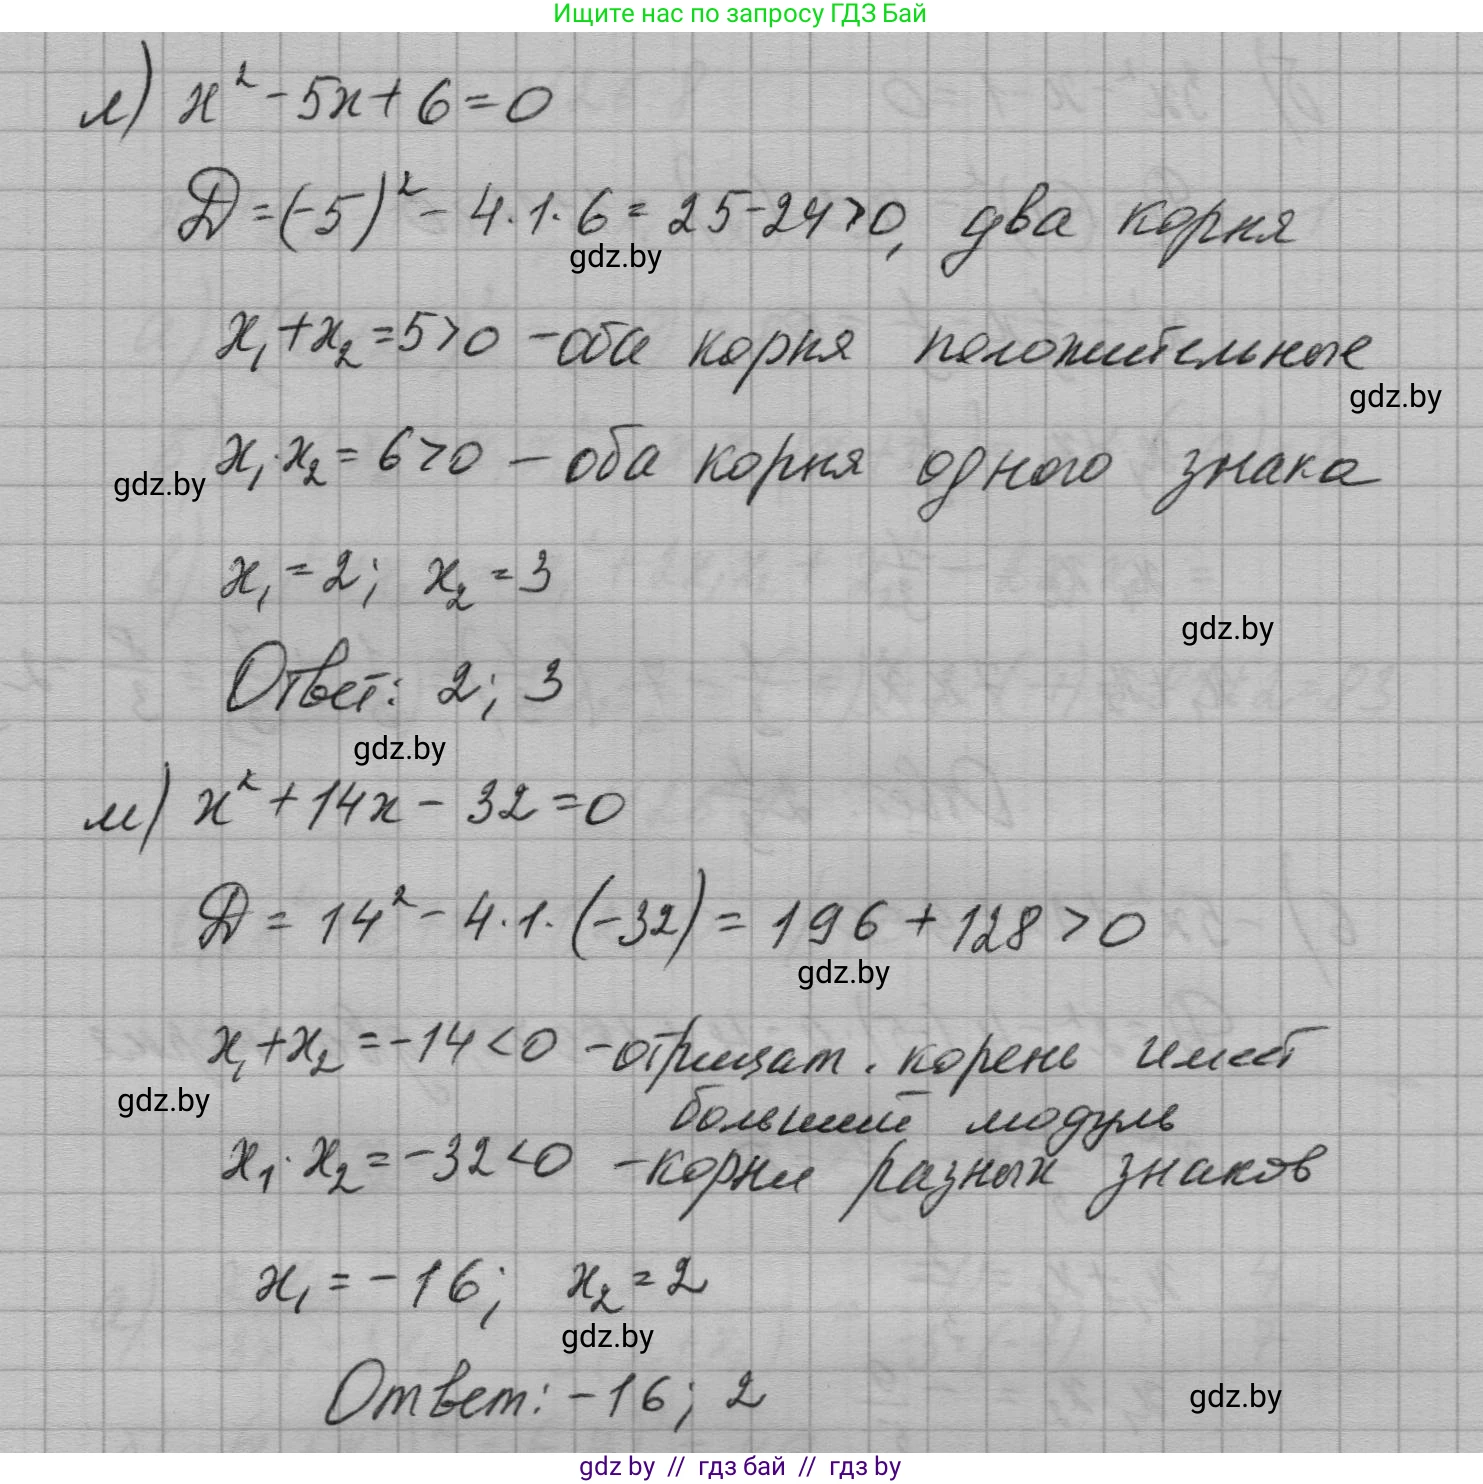 Ищите нас по запросу ГДЗ Бай
л) x² - 5x + 6 = 0
D = (-5)² - 4·1·6 = 25-24>0, два корня
gdz.by
x₁+x₂=5>0 - оба корня положительные
gdz.by
x₁·x₂ = 6>0 - оба корня одного знака
gdz.by
x₁ = 2; x₂ = 3
gdz.by
Ответ: 2; 3
gdz.by
м) x² + 14x - 32 = 0
D = 14² - 4·1·(-32) = 196 + 128 > 0
gdz.by
x₁+x₂ = -14<0 - отрицат. корень имеет
gdz.by
больший модуль
x₁·x₂ = -32<0 - корни разных знаков
x₁ = -16; x₂ = 2
gdz.by
Ответ: -16; 2
gdz.by
gdz by // гдз бай // гдз by